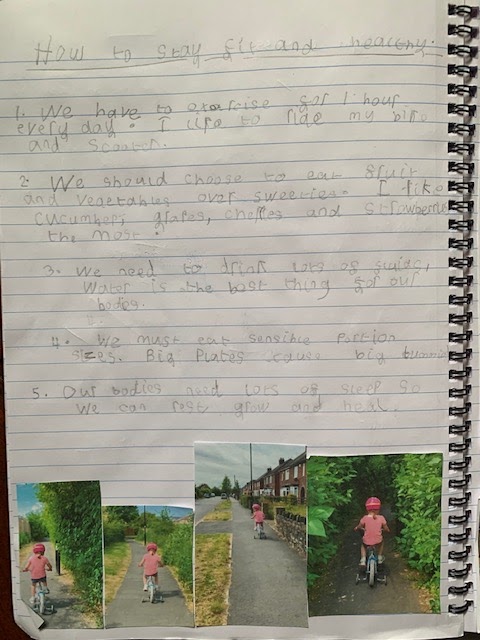 How to stay fit and healthy.
1. We have to exercise for 1 hour
every day. I like to ride my bike
and scooter.
2. We should choose to eat fruit
and vegetables over sweeties. I like
cucumber, grapes, cherries and strawberries
the most.
3. We need to drink lots of fluids,
Water is the best thing for our
bodies.
4. We must eat sensible portion
sizes. Big Plates cause big tummies
5. Our bodies need lots of sleep so
we can rest, grow and heal.